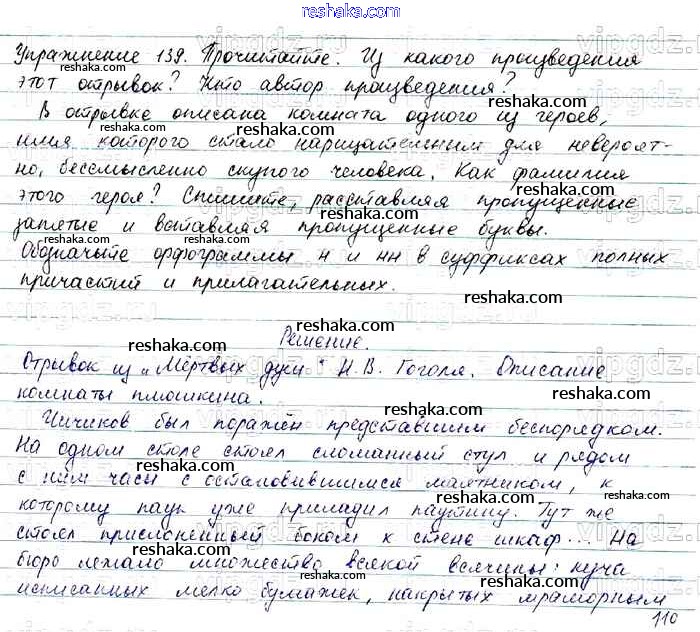 reshaka.com
Упражнение 139. Прочитайте. Из какого произведения
reshaka.com reshaka.com
этот отрывок? Кто автор произведения?
В отрывке описана комната одного из героев,
reshaka.com reshaka.com
имя которого стало нарицательным для невероят-
но, бессмысленно скупого человека. Как фамилия
reshaka.com
этого героя? Спишите, расставляя пропущенные
reshaka.com
запятые и вставляя пропущенные буквы.
reshaka.com reshaka.com
Обозначьте орфограммы н и нн в суффиксах полных
причастий и прилагательных.
reshaka.com
reshaka.com
Решение.
reshaka.com
Отрывок из „Мёртвых душ" Н.В. Гоголя. Описание
комнаты плюшкина.
reshaka.com
Чичиков был поражён представшим беспорядком.
reshaka.com
На одном столе стоял сломанный стул и рядом
reshaka.com
с ним часы с остановившимся маятником, к
reshaka.com
которому паук уже приладил паутину. Тут же
reshaka.com
стоял прислоненный боком к стене шкаф... На
reshaka.com
бюро лежало множество всякой всячины: куча
reshaka.com
исписанных мелко бумажек, накрытых мраморным
reshaka.com
110